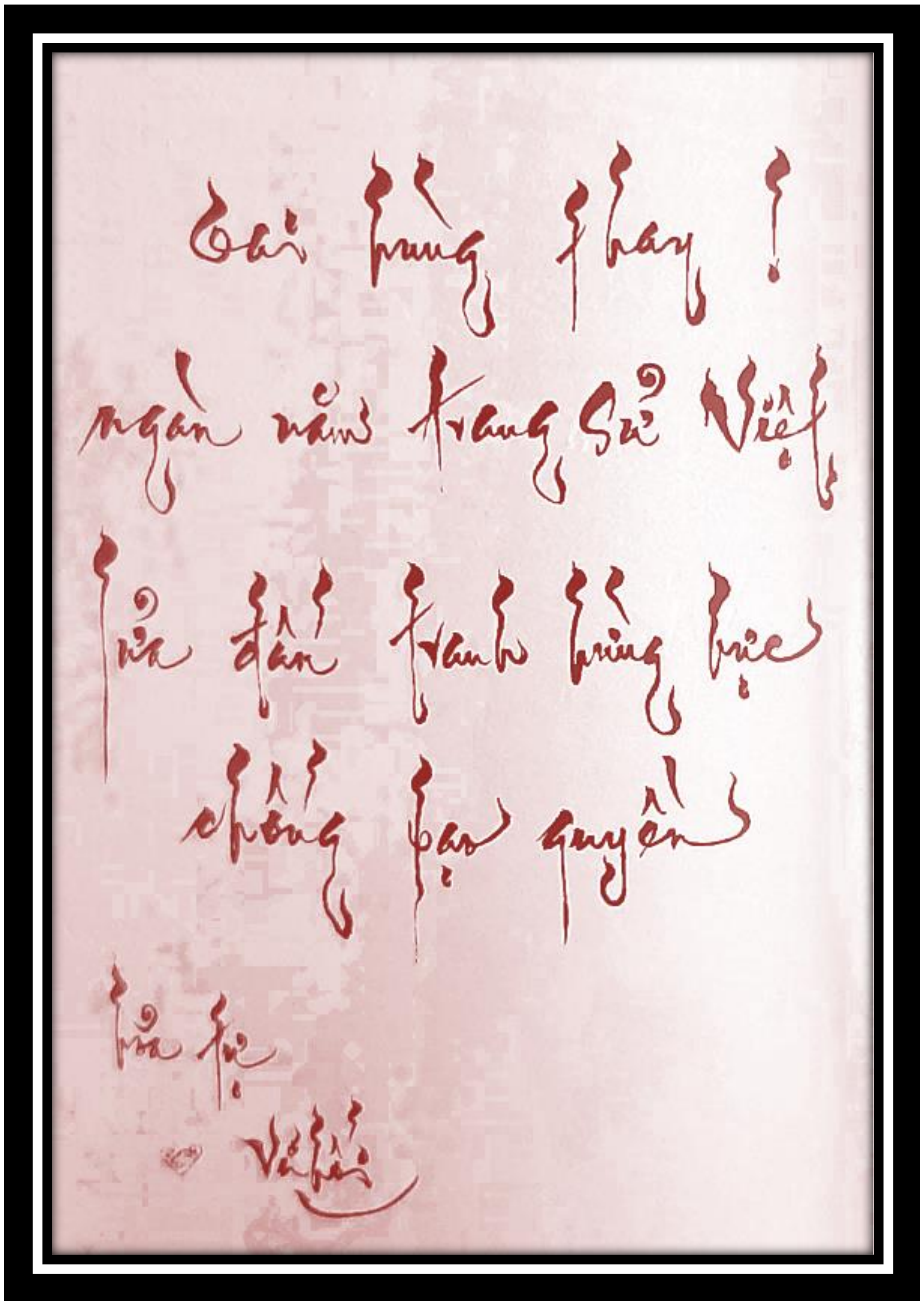 Oai hùng thay !
ngàn năm trang Sử Việt
lửa đấu tranh hừng hực
chống bạo quyền
hỏa tự
Vũ Hối